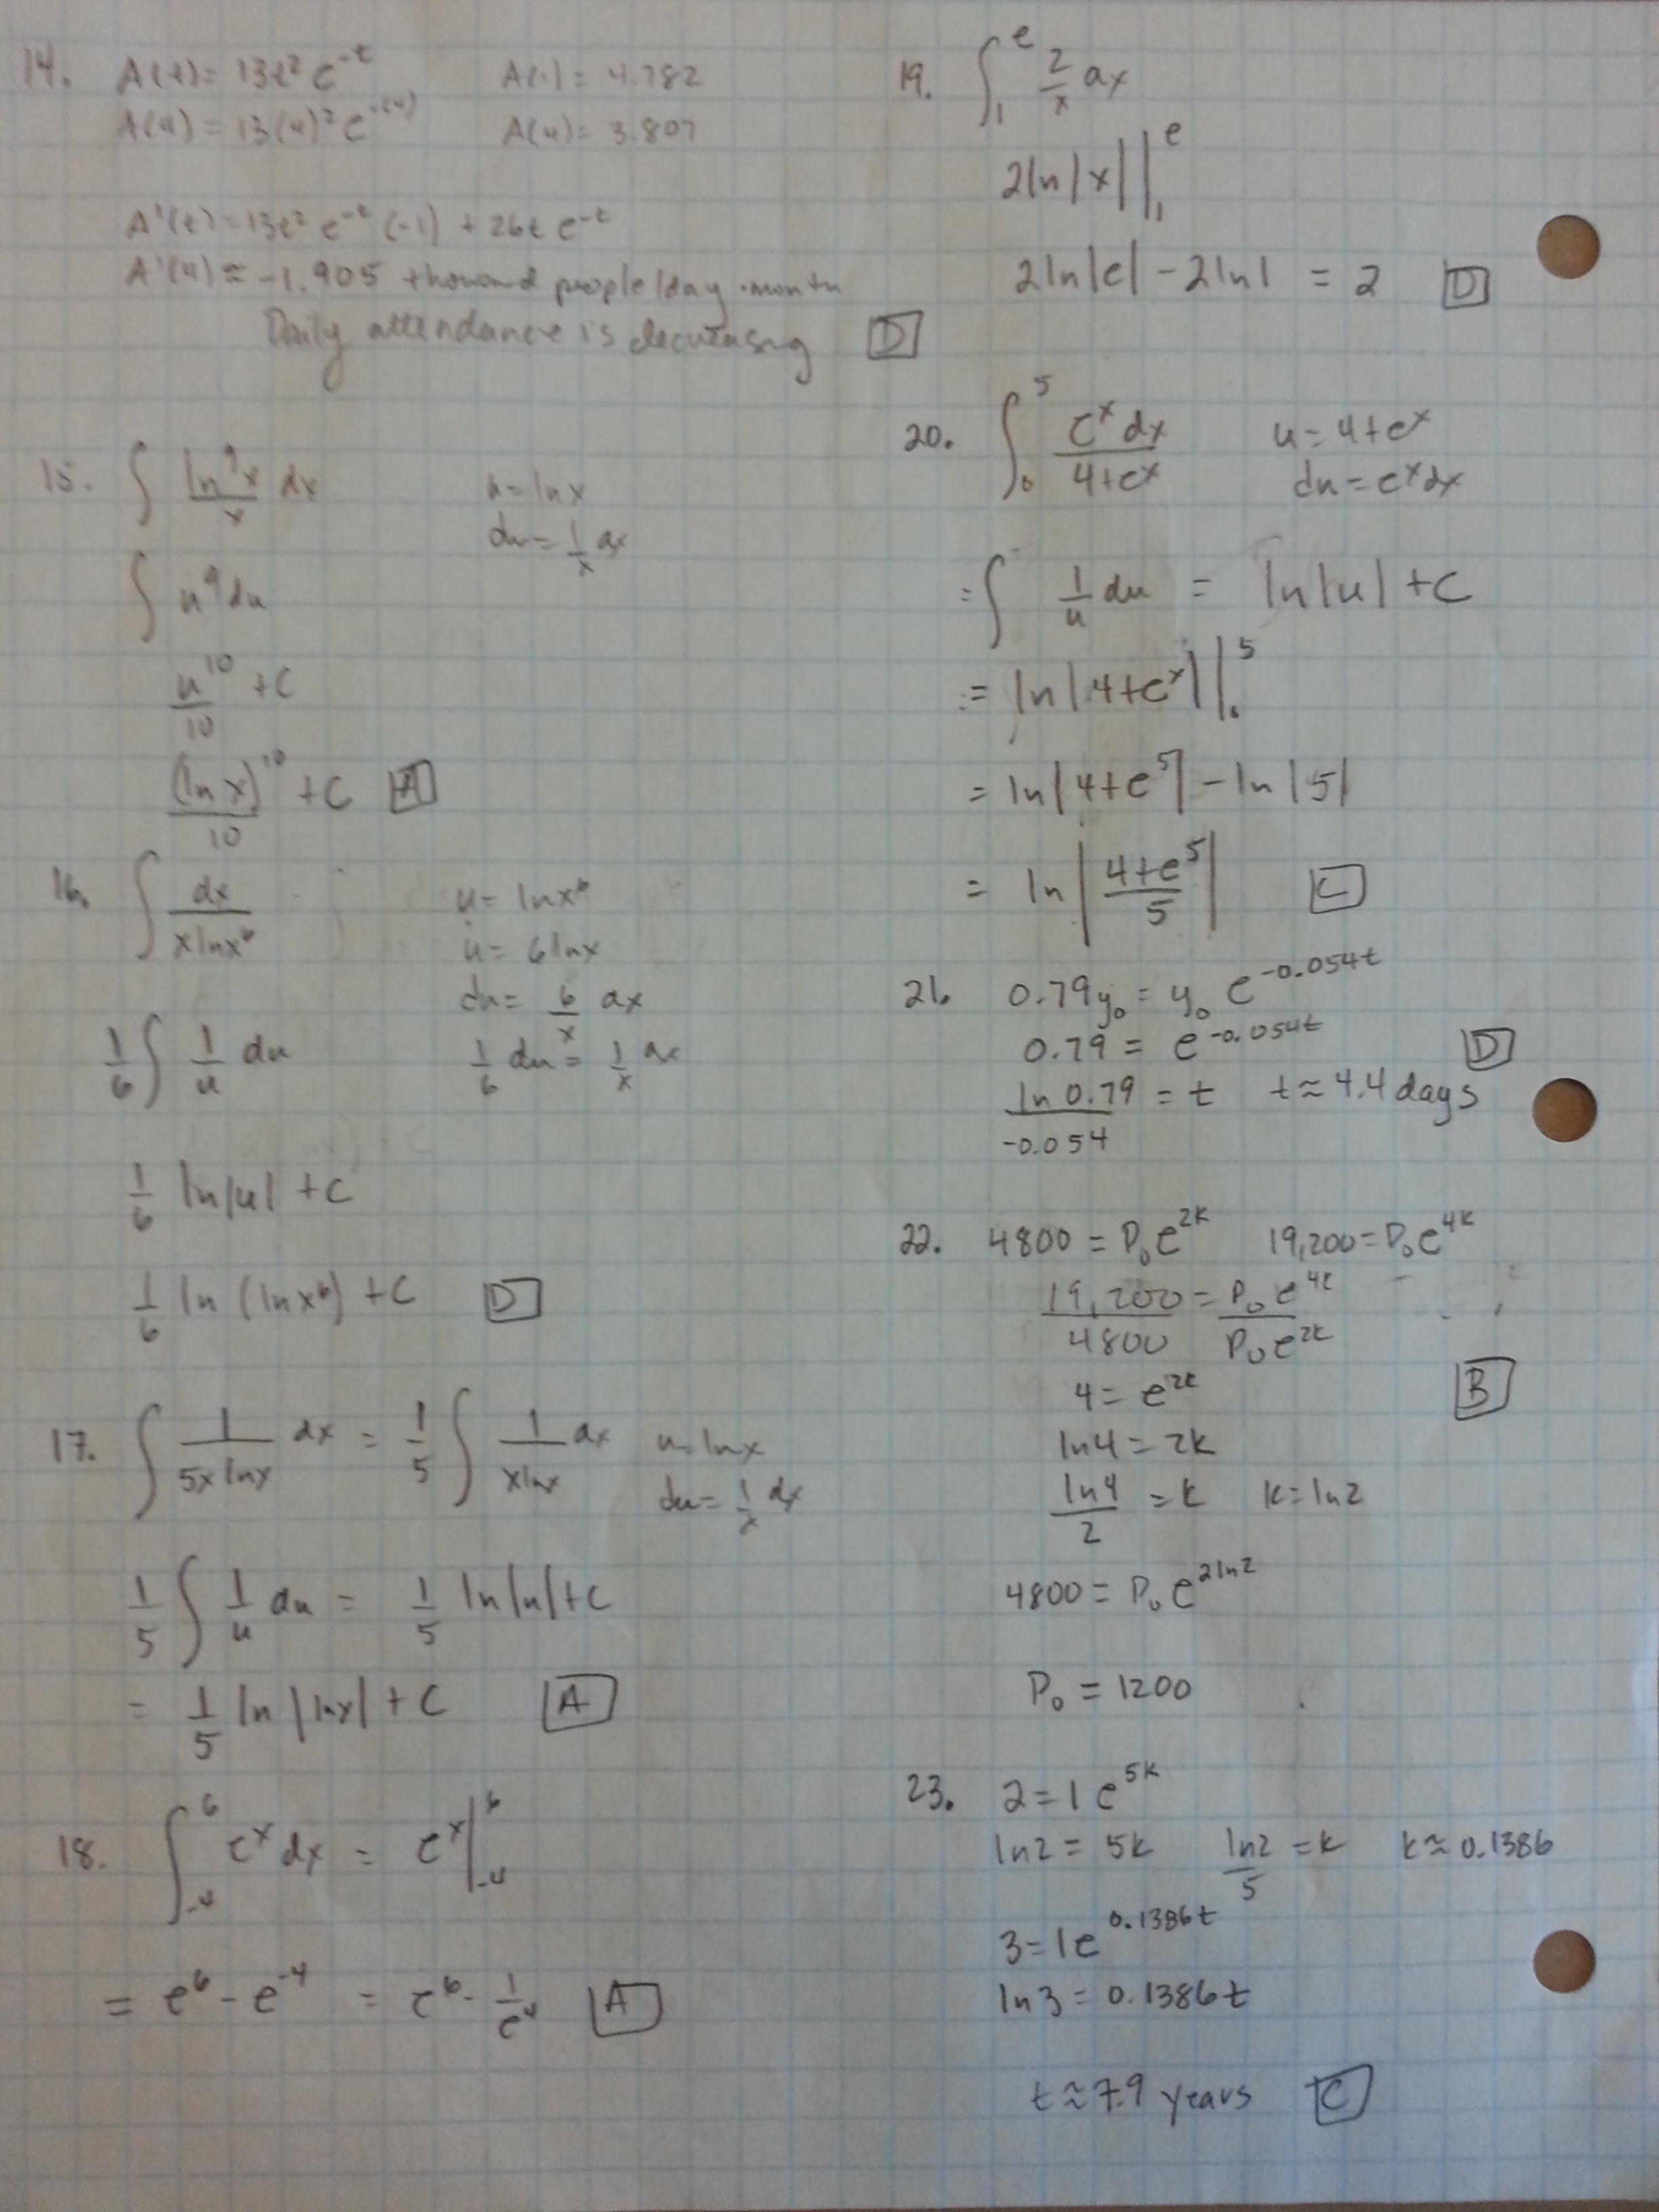 14. A(t) = 13t² e^-t    A(1) = 4.782
A(4) = 13(4)² e^-(4)    A(4) = 3.807
A'(t) = 13t² e^-t (-1) + 26t e^-t
A'(4) ≈ -1.905 thousand people/day·month
Daily attendance is decreasing D
15. ∫ ln⁹x/x dx    u = lnx
du = 1/x dx
∫ u⁹ du
u¹⁰/10 + C
(ln x)¹⁰/10 + C A
16. ∫ dx/(x lnx⁶)    u = lnx⁶
u = 6lnx
du = 6/x dx
1/6 ∫ 1/u du    1/6 du = 1/x dx
1/6 ln|u| + C
1/6 ln (lnx⁶) + C D
17. ∫ 1/(5x lnx) dx = 1/5 ∫ 1/(x lnx) dx    u = lnx
du = 1/x dx
1/5 ∫ 1/u du = 1/5 ln|u| + C
= 1/5 ln |lnx| + C A
18. ∫₋₄⁶ e^x dx = e^x |₋₄⁶
= e⁶ - e⁻⁴ = e⁶ - 1/e⁴ A
19. ∫₁^e 2/x dx
2ln|x| |₁^e
2ln|e| - 2ln1 = 2 D
20. ∫₀⁵ e^x dx/(4+e^x)    u = 4+e^x
du = e^x dx
= ∫ 1/u du = ln|u| + C
= ln|4+e^x| |₀⁵
= ln|4+e⁵| - ln|5|
= ln |(4+e⁵)/5| C
21. 0.79y₀ = y₀ e^-0.054t
0.79 = e^-0.054t D
ln 0.79/-0.054 = t    t ≈ 4.4 days
22. 4800 = P₀e^2k    19,200 = P₀e^4k
19,200/4800 = P₀e^4k/P₀e^2k
4 = e^2k B
ln4 = 2k
ln4/2 = k    k = ln2
4800 = P₀ e^2ln2
P₀ = 1200
23. 2 = 1 e^5k
ln2 = 5k    ln2/5 = k    k ≈ 0.1386
3 = 1e^0.1386t
ln3 = 0.1386t
t ≈ 7.9 years C